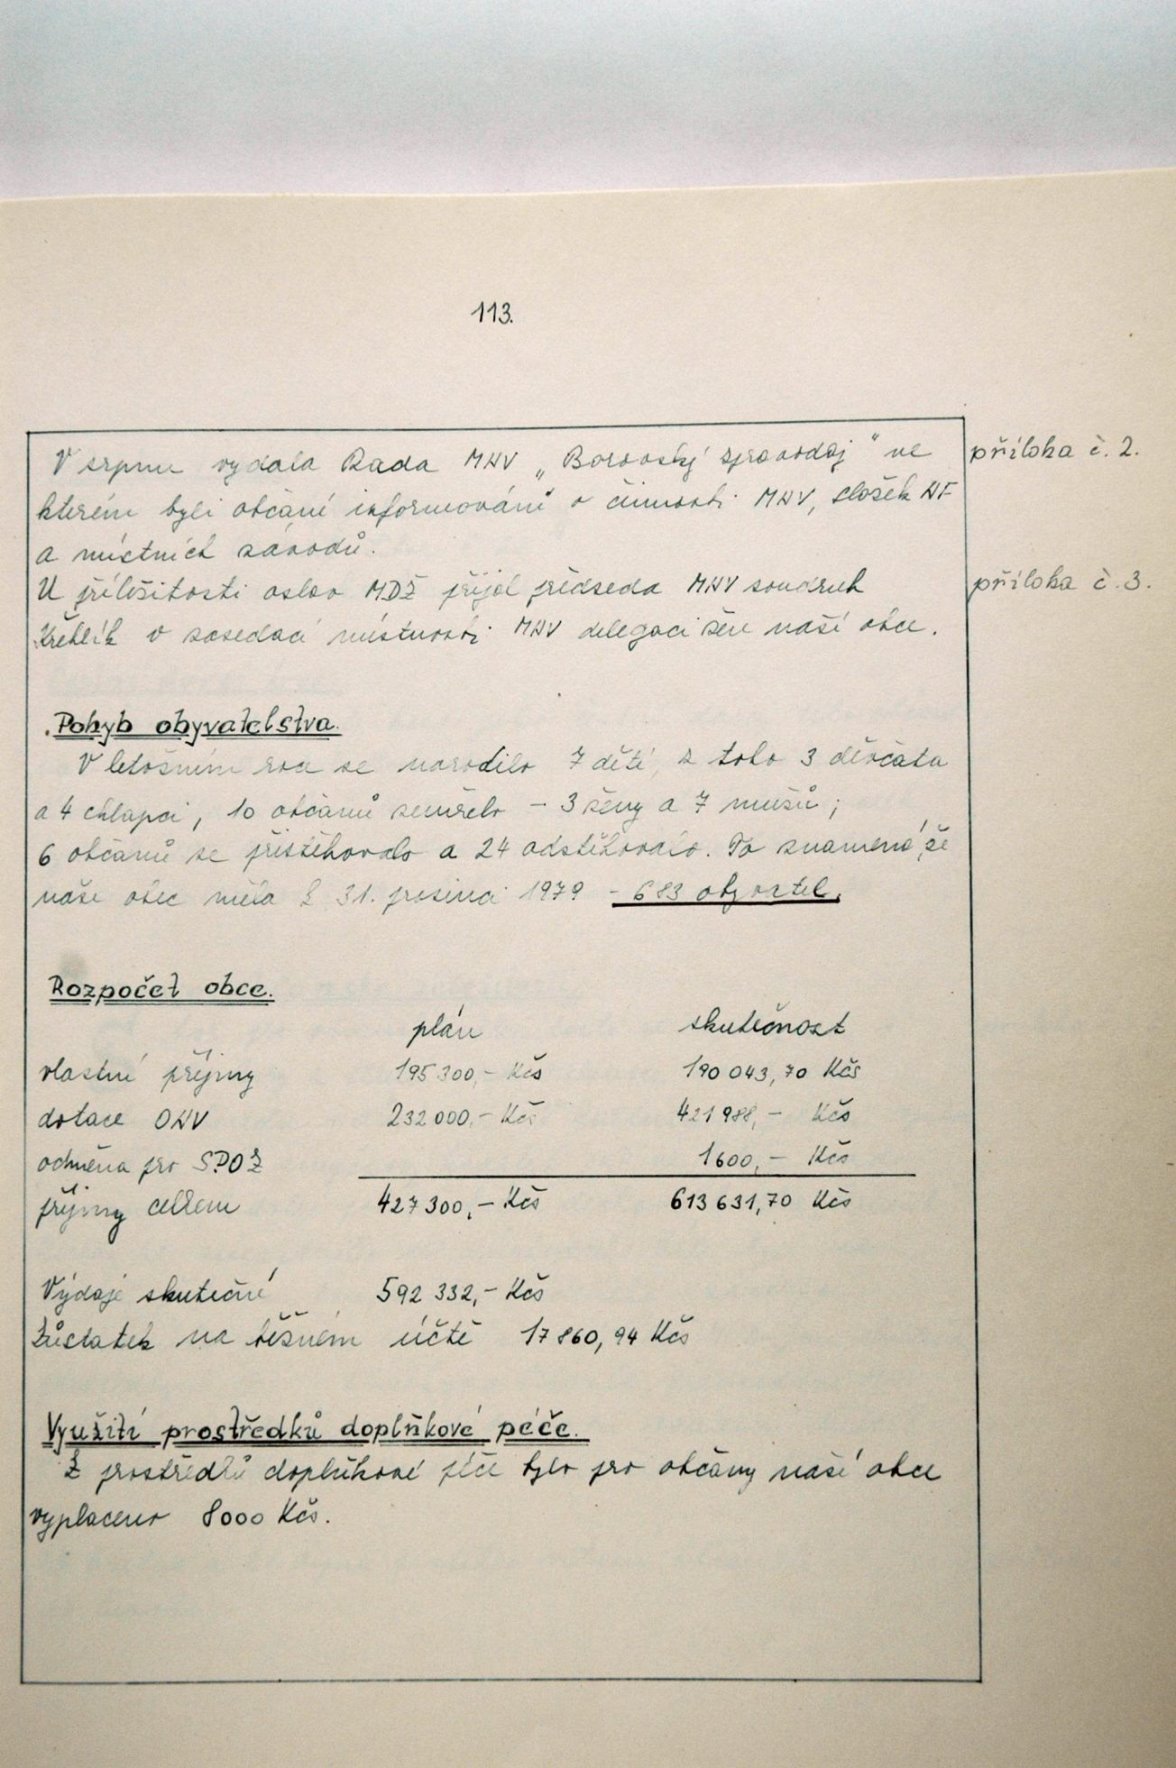 113.
V srpnu vydala Rada MNV „Borovský zpravodaj" ve
příloha č. 2.
kterém byli občané informováni o činnosti MNV, složek NF
a místních závodů.
U příležitosti oslav MDŽ přijal předseda MNV soudruh
příloha č. 3.
Křehlík v zasedací místnosti MNV delegaci žen naší obce.
Pohyb obyvatelstva.
V letošním roce se narodilo 7 dětí, z toho 3 děvčata
a 4 chlapci, 10 občanů zemřelo - 3 ženy a 7 mužů;
6 občanů se přistěhovalo a 24 odstěhovalo. To znamená, že
naše obec měla k 31. prosinci 1979 - 683 obyvatel.
Rozpočet obce.
plán skutečnost
vlastní příjmy 195 300,- Kčs 190 043,70 Kčs
dotace ONV 232 000,- Kčs 421 988,- Kčs
odměna pro SPOZ 1600,- Kčs
příjmy celkem 427 300,- Kčs 613 631,70 Kčs
Výdaje skutečné 592 332,- Kčs
Zůstatek na běžném účtě 17 860,94 Kčs
Využití prostředků doplňkové péče.
Z prostředků doplňkové péče bylo pro občany naší obce
vyplaceno 8000 Kčs.